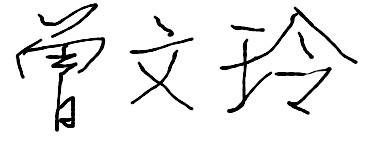 曾文玲